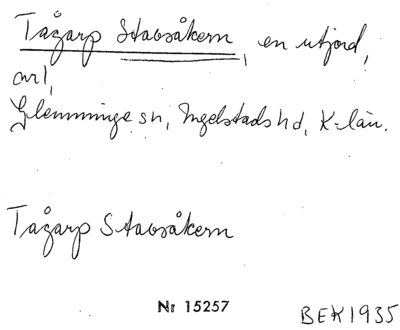 Tågarp Stavsåkern, en utjord,
arl,
Glemminge sn, Ingelstads hd, K-län.
Tågarp Stavsåkern
Nr 15257
BEK 1935